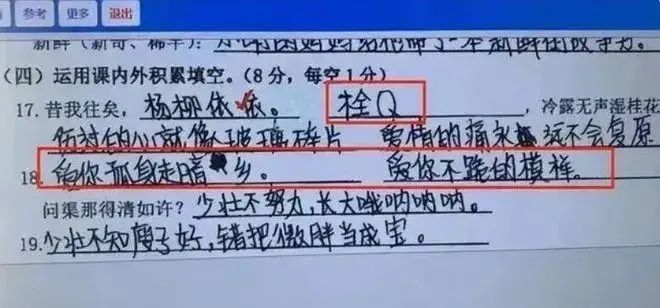 参考 更多 退出
(四) 运用课内外积累填空。(8分,每空1分)
17.昔我往矣,杨柳依依。 栓Q ,冷露无声湿桂花
伤过的心就像玻璃碎片 爱情的痛永远不会复原
18.爱你孤身走暗乡。 爱你不跪的模样。
问渠那得清如许?少壮不努力,长大哦呐呐呐。
19.少壮不知瘦子好,错把微胖当成宝。